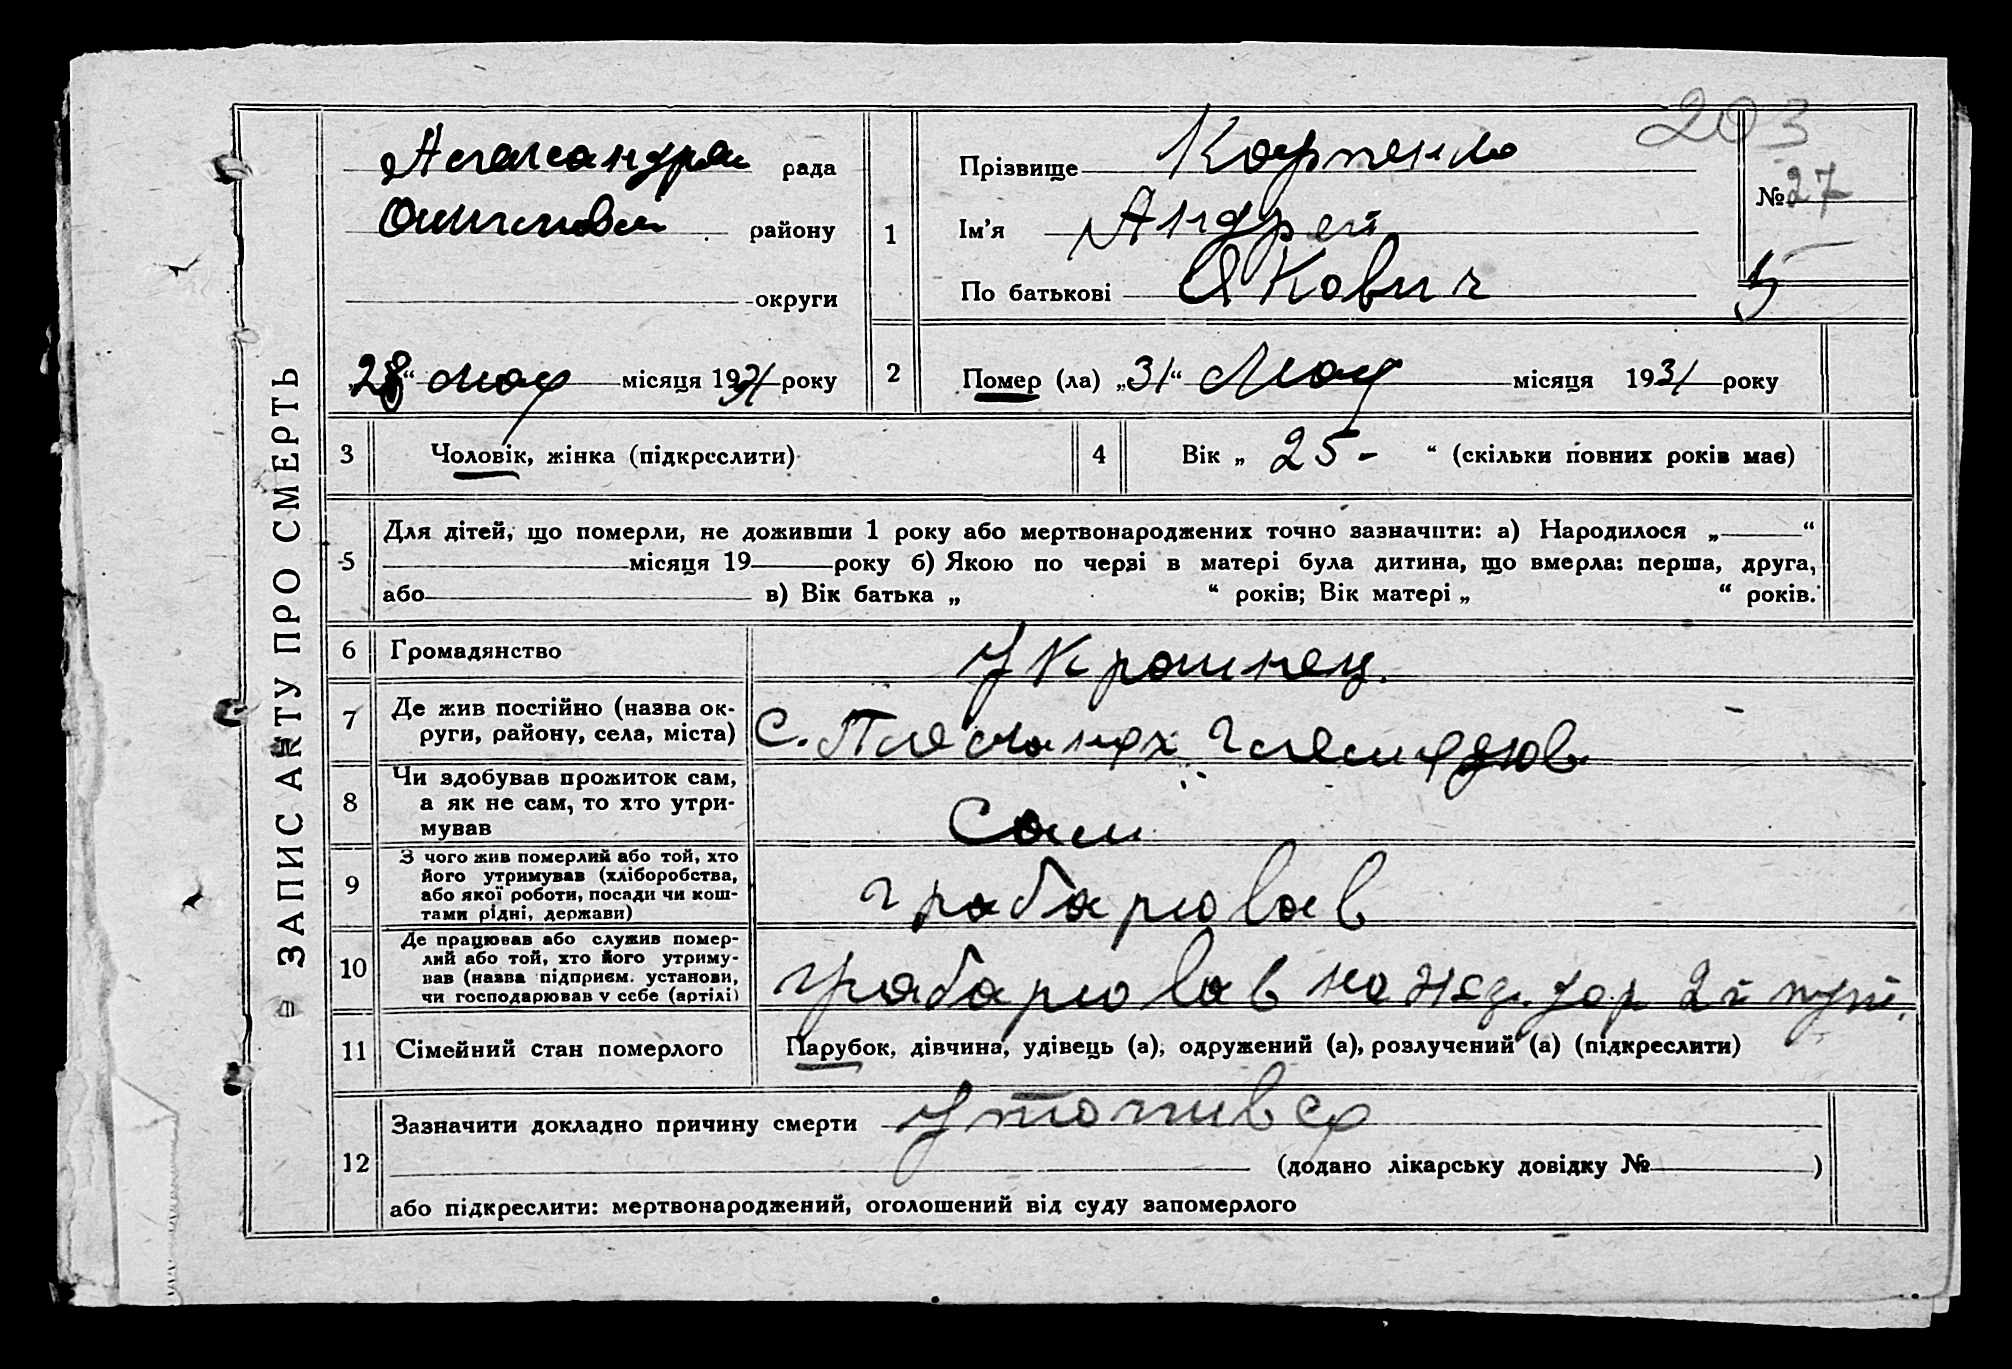 ЗАПИС АКТУ ПРО СМЕРТЬ
203
№ 27
5
рада
району
округи
"28" мая місяця 1931 року
1
Прізвище Карпенко
Ім'я Андрей
По батькові Якович
2
Помер (ла) „31“ Мая місяця 1931 року
3
Чоловік, жінка (підкреслити)
4
Вік „ 25 - “ (скільки повних років має)
5
Для дітей, що померли, не доживши 1 року або мертвонароджених точно зазначити: а) Народилося „ “
місяця 19 року б) Якою по черзі в матері була дитина, що вмерла: перша, друга,
або в) Вік батька „ “ років; Вік матері „ “ років.
6
Громадянство
Украинец.
7
Де жив постійно (назва ок-
руги, району, села, міста)
С.
8
Чи здобував прожиток сам,
а як не сам, то хто утри-
мував
Сам
9
З чого жив померлий або той, хто
його утримував (хліборобства,
або якої роботи, посади чи кош-
тами рідні, держави)
грабарював
10
Де працював або служив помер-
лий або той, хто його утриму-
вав (назва підприєм. установи,
чи господарював у себе (артілі)
грабарював на 2й
11
Сімейний стан померлого
Парубок, дівчина, удівець (а), одружений (а), розлучений (а) (підкреслити)
12
Зазначити докладно причину смерти утопився
(додано лікарську довідку № )
або підкреслити: мертвонароджений, оголошений від суду запомерлого